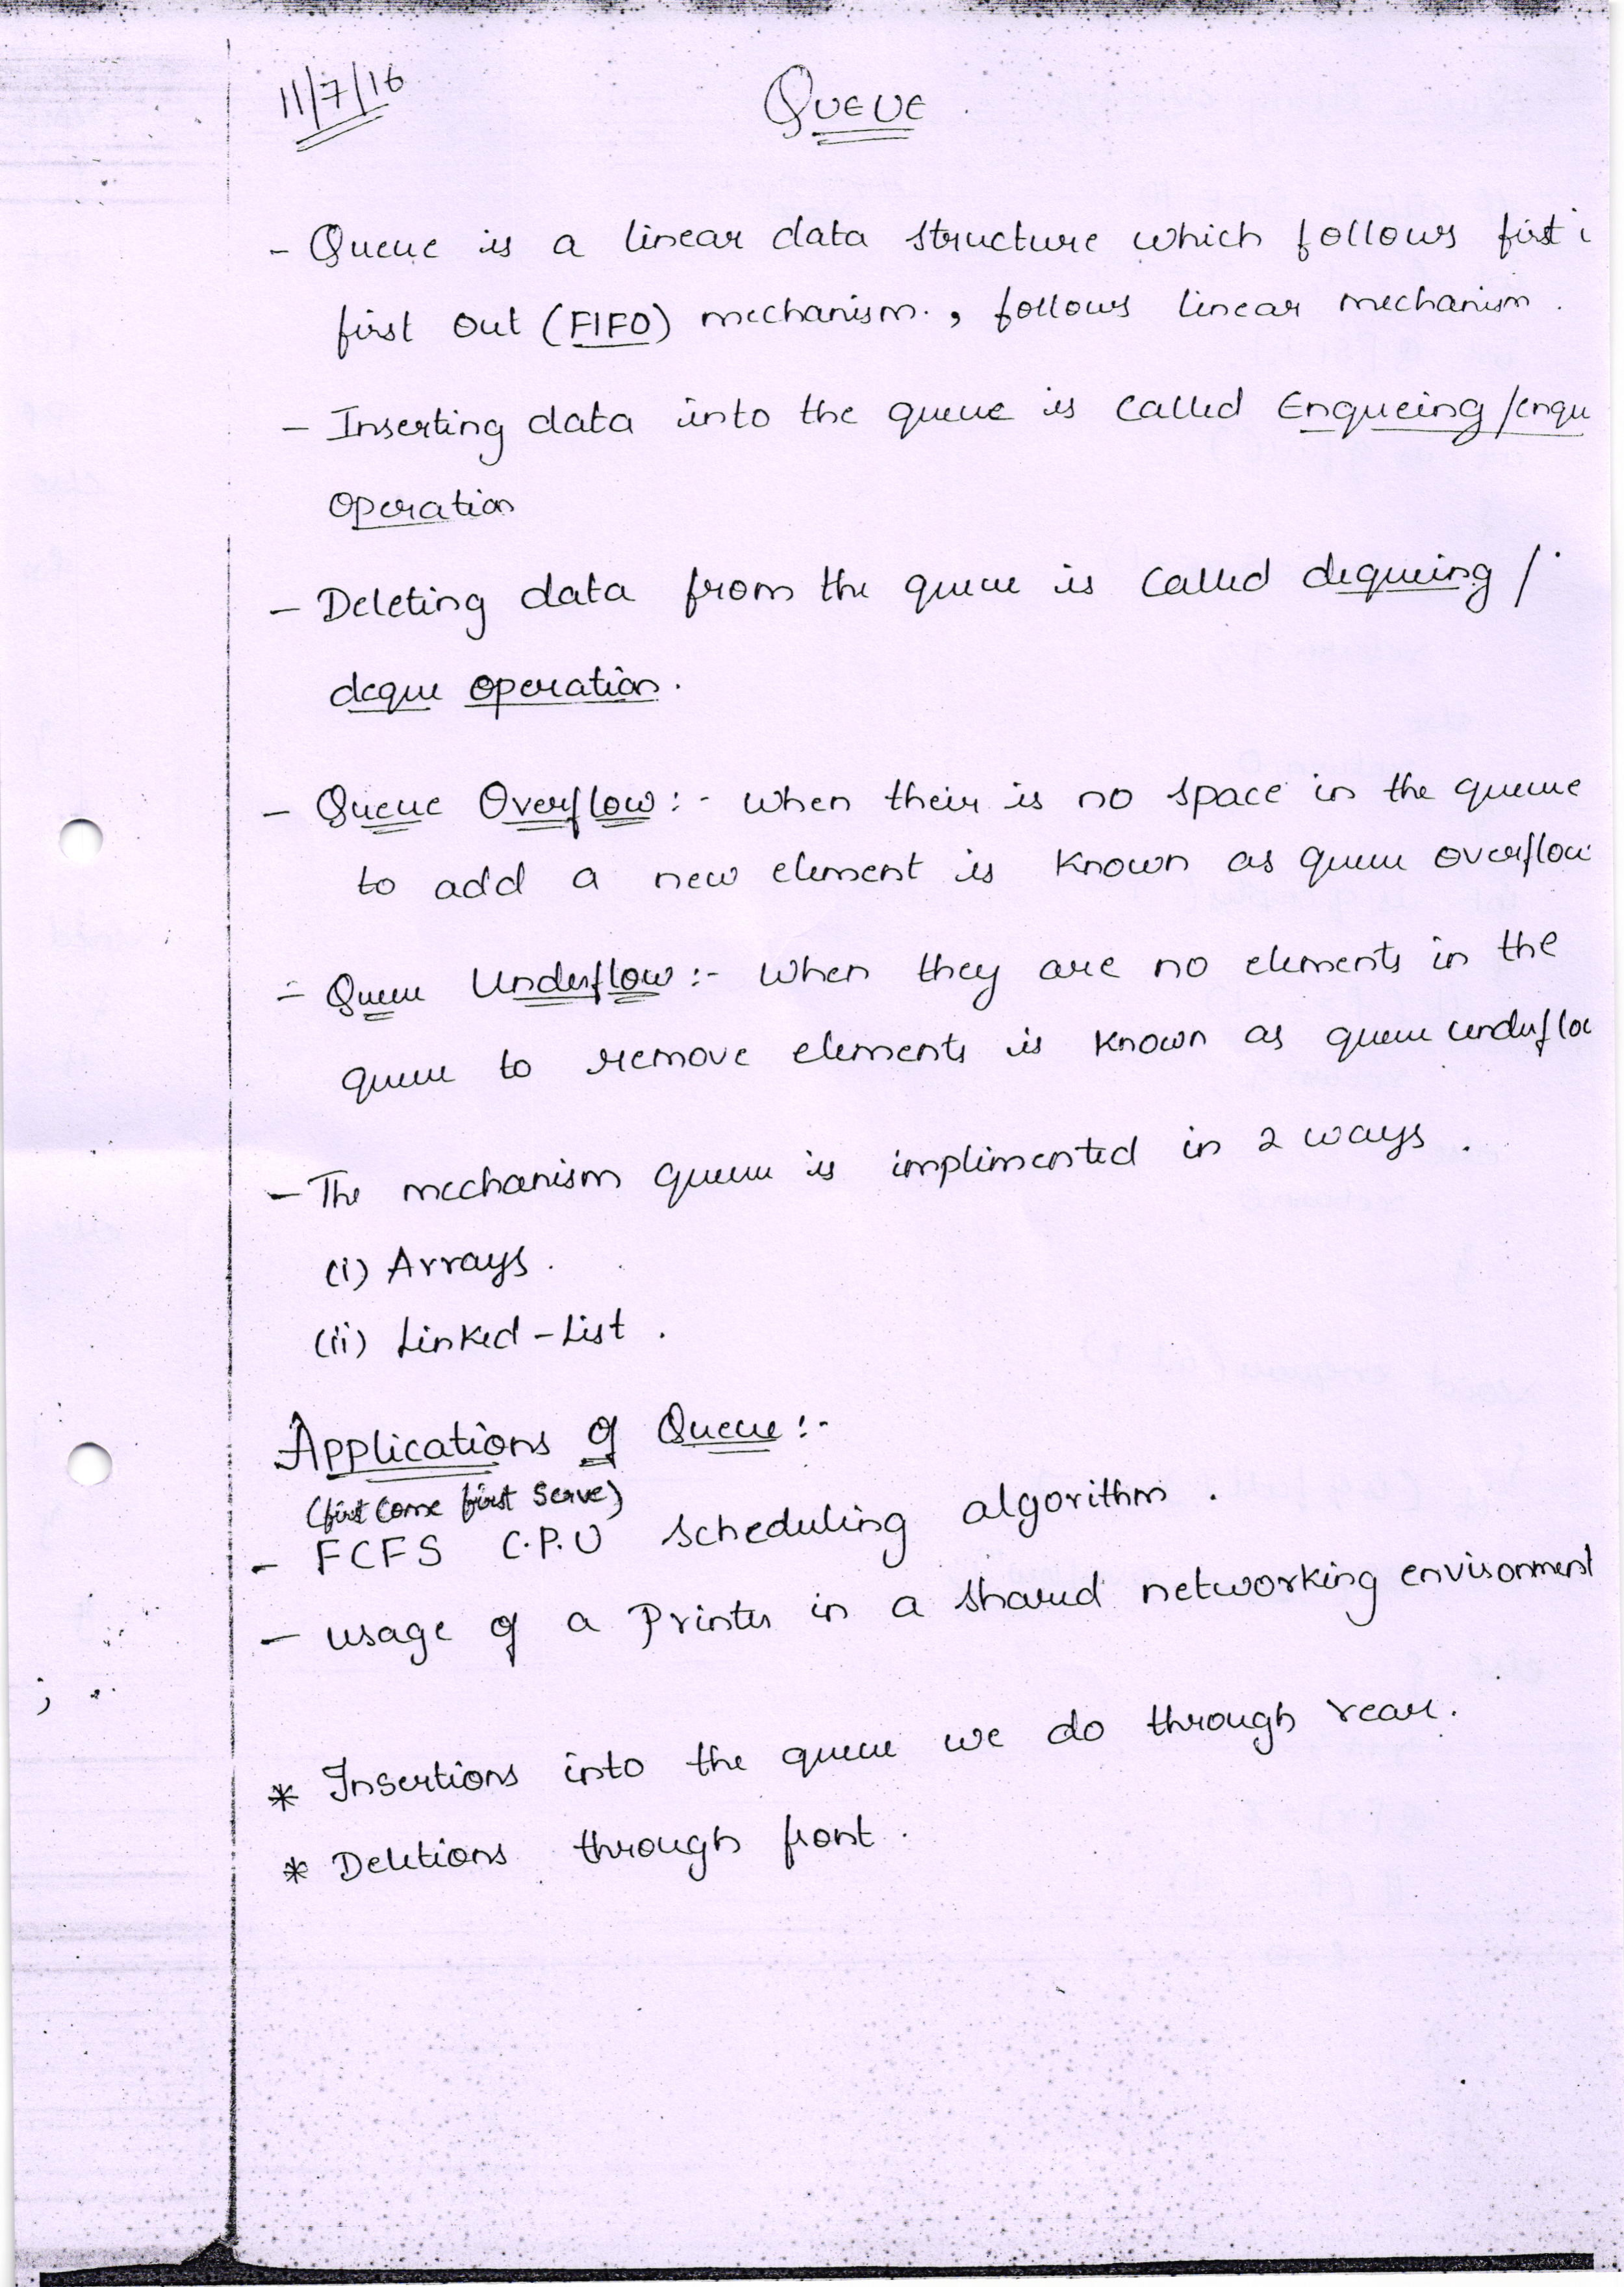 11/7/16
QUEUE
- Queue is a linear data structure which follows first i
first out (FIFO) mechanism., follows linear mechanism.
- Inserting data into the queue is called Enqueing/enqu
operation
- Deleting data from the queue is called dequeing /
deque operation.
- Queue Overflow:- when their is no space in the queue
to add a new element is known as queue overflow
- Queue Underflow:- when they are no elements in the
queue to remove elements is known as queue underflo
- The mechanism queue is implimented in 2 ways.
(i) Arrays.
(ii) Linked-List.
Applications of Queue:-
(first come first serve)
- FCFS C.P.U scheduling algorithm.
- usage of a Printer in a shared networking environment
* Insertions into the queue we do through rear.
* Deletions through front.